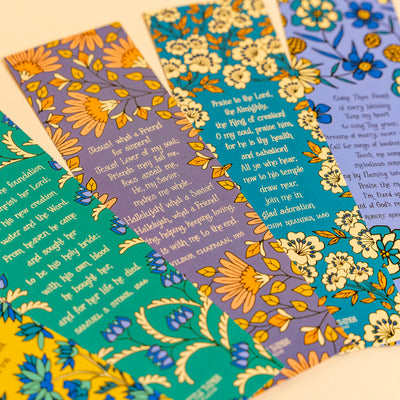 foundation
Christ her Lord
his new creation
water and the Word.
From heaven he came
and sought her
to be his holy bride;
with his own blood
he bought her,
and for her life he died.
SAMUEL J. STONE, 1866
Jesus! what a Friend
for sinners!
Jesus! Lover of my soul;
Friends may fail me,
foes assail me,
He, my Savior,
makes me whole.
Hallelujah! what a Savior!
Hallelujah, what a Friend!
helping, keeping, loving,
is with me to the end.
CHAPMAN, 1910
Praise to the Lord,
the Almighty,
the King of creation!
O my soul, praise him,
for he is thy health
and salvation!
All ye who hear,
now to his temple
draw near,
join me in
glad adoration.
NEANDER, 1680
Come Thou Fount
of every blessing
Tune my heart
to sing Thy grace
Call for songs of loudest
Teach me some
melodious sonnet
by flaming tongues
Praise the
I'm fixed upon
ROBERT
THINGS